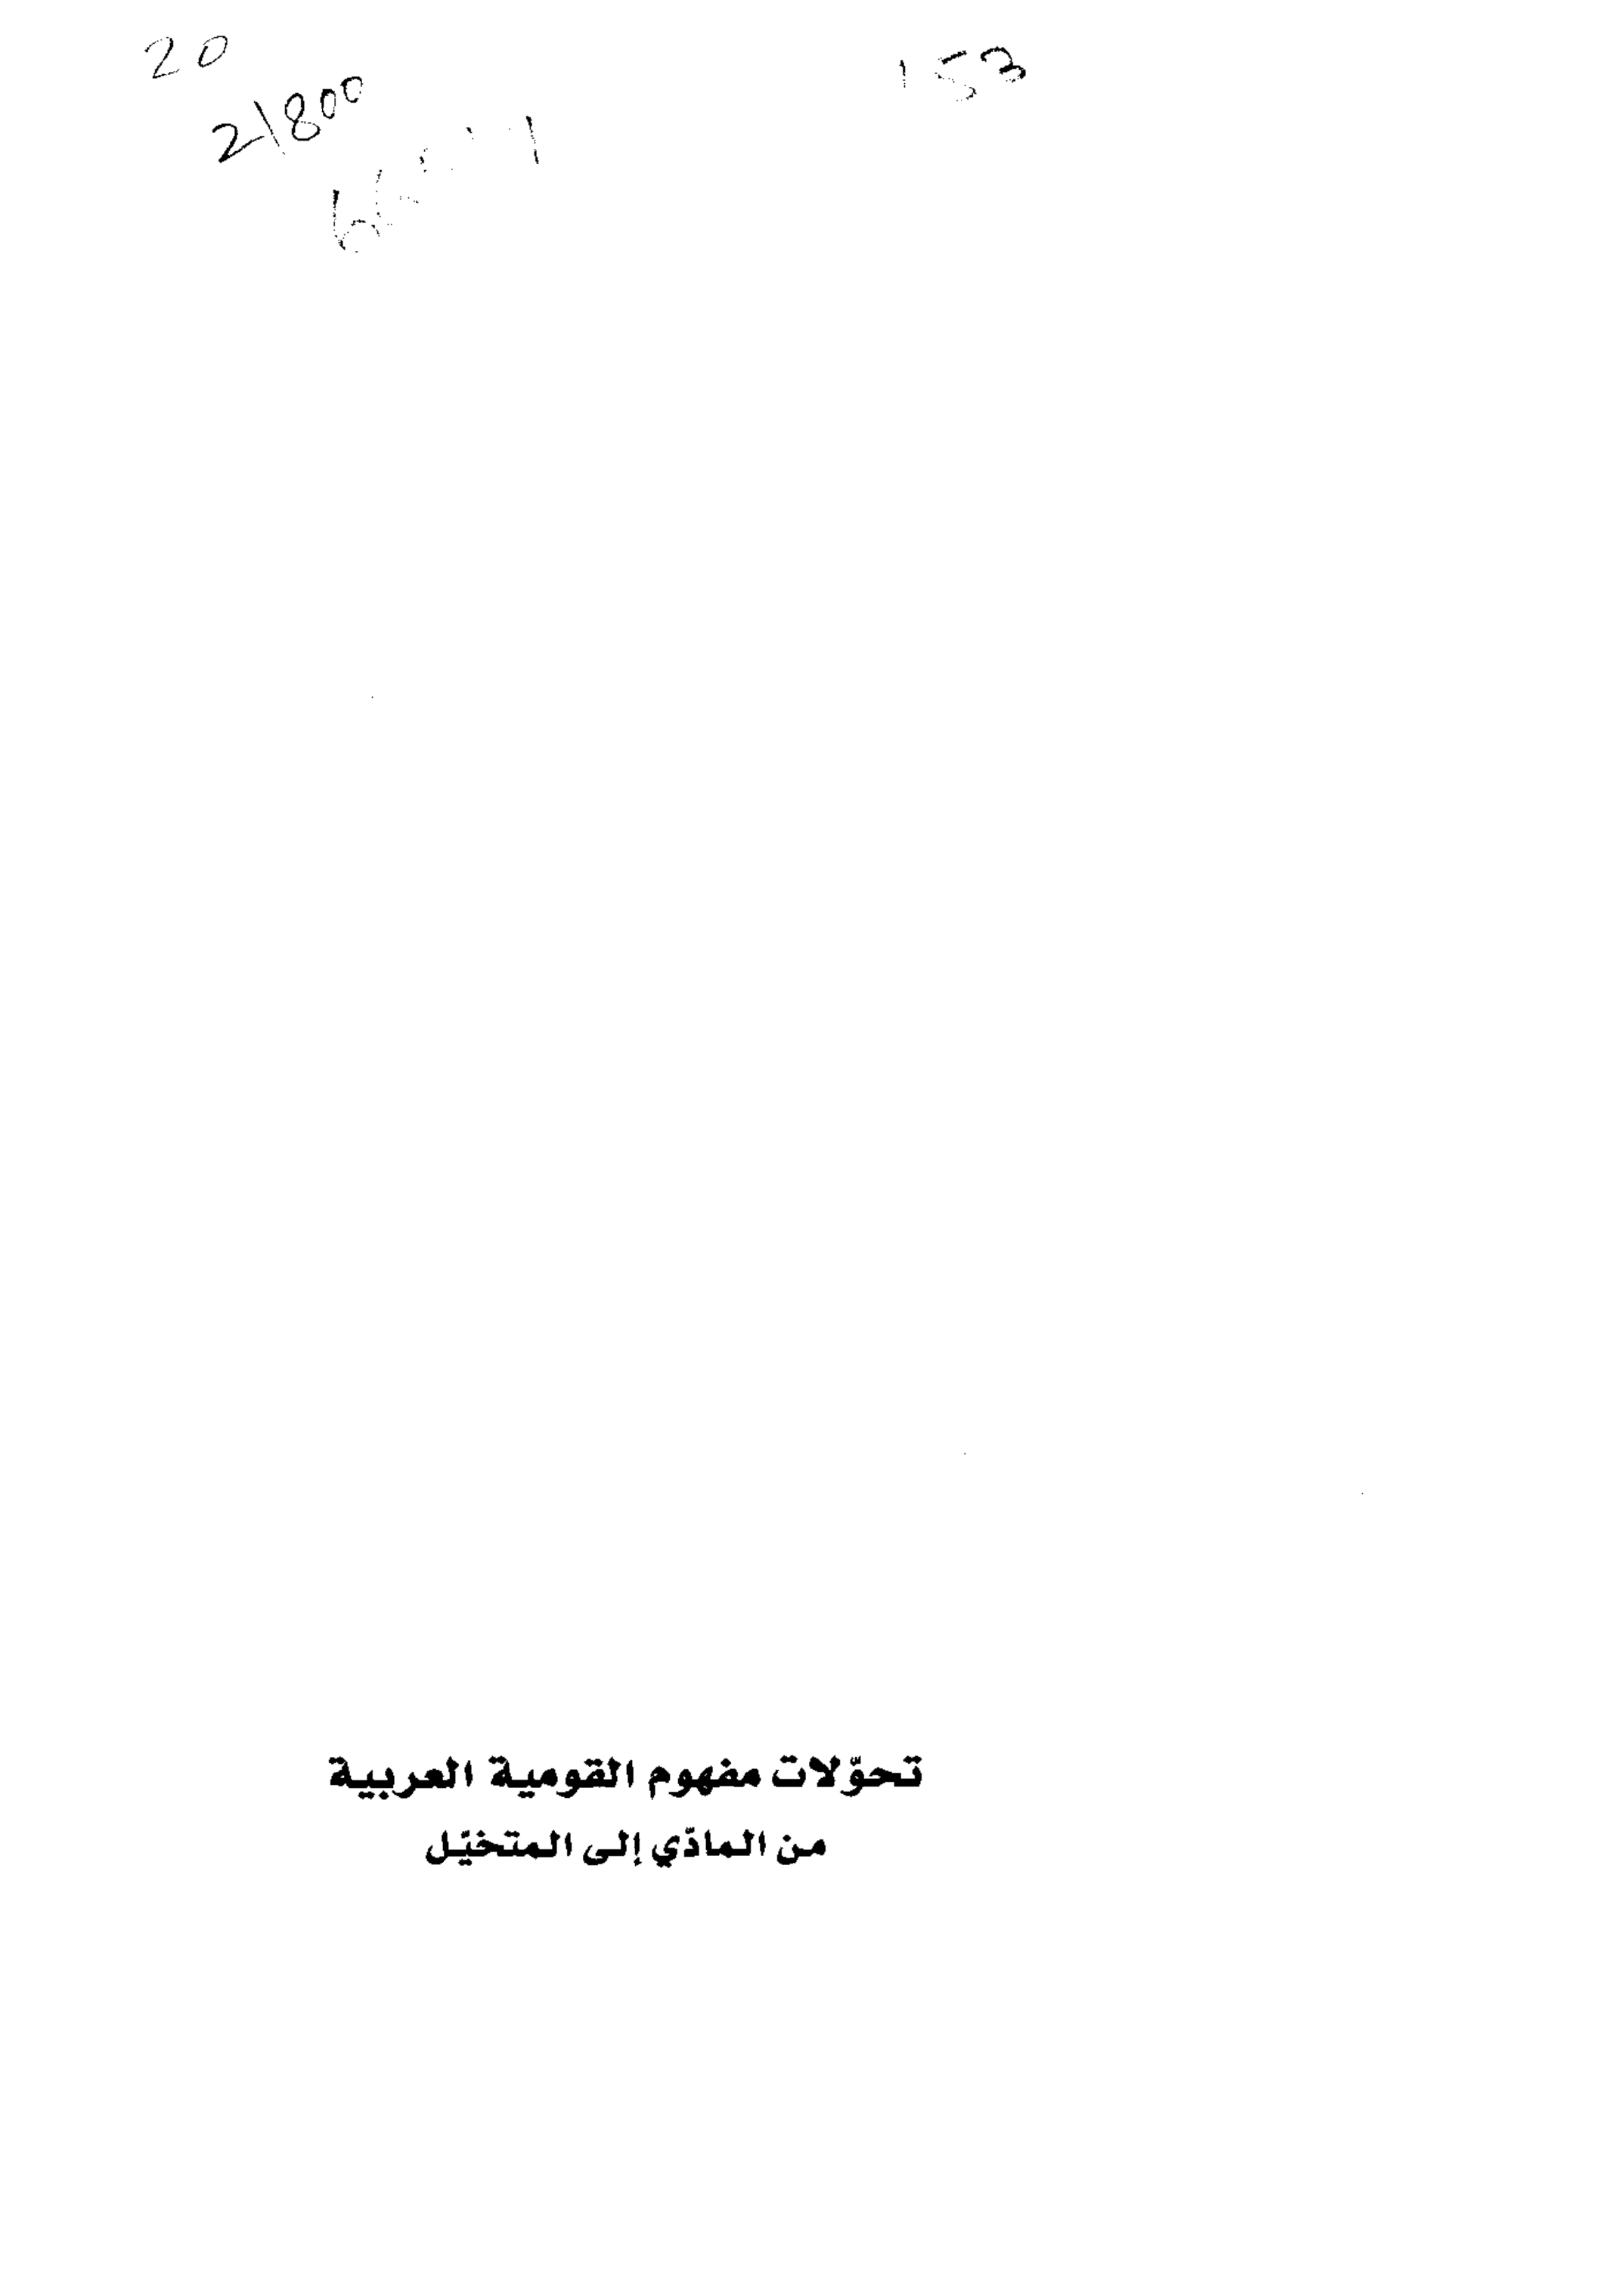 20
153
21800
تحوّلات مفهوم القومية العربية
من المادّي إلى المتخيّل